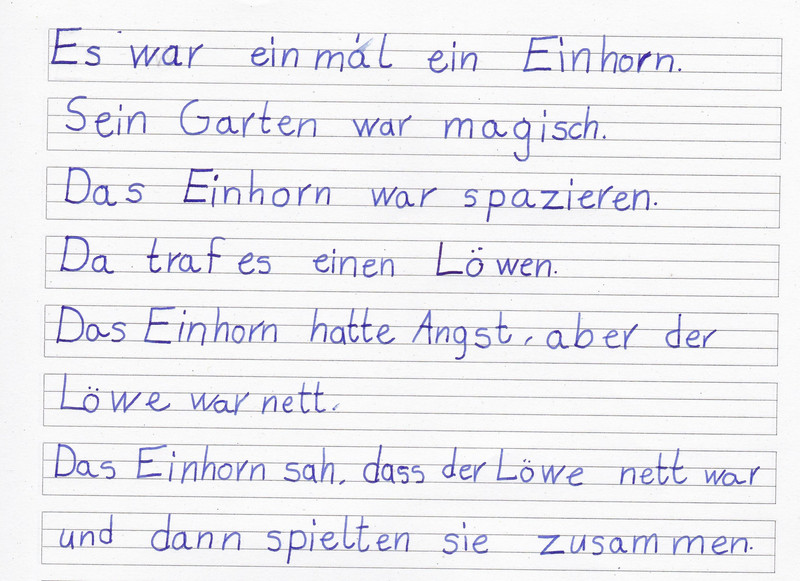 Es war einmal ein Einhorn.
Sein Garten war magisch.
Das Einhorn war spazieren.
Da traf es einen Löwen.
Das Einhorn hatte Angst, aber der
Löwe war nett.
Das Einhorn sah, dass der Löwe nett war
und dann spielten sie zusammen.